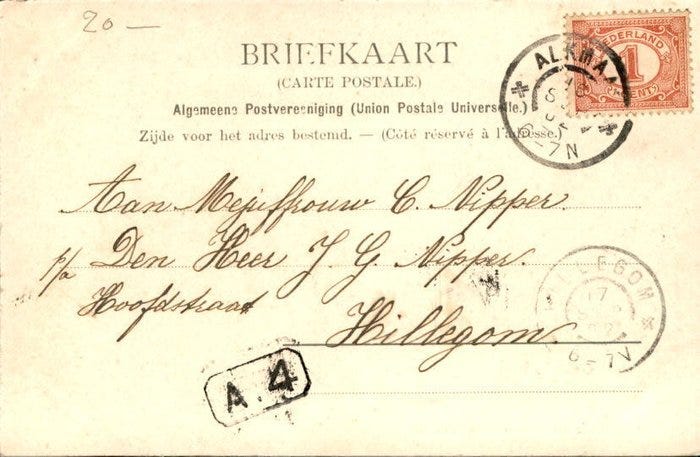 20 —
BRIEFKAART
(CARTE POSTALE.)
Algemeene Postvereeniging (Union Postale Universelle.)
Zijde voor het adres bestemd. — (Côté réservé à l'adresse.)
NEDERLAND
1
CENT
ALKMAA
6-7N
Aan Mejuffrouw C. Nipper.
p/a Den Heer J. G. Nipper.
Hoofdstraat
Hillegom.
LEGOM
17
6-7V
A.4